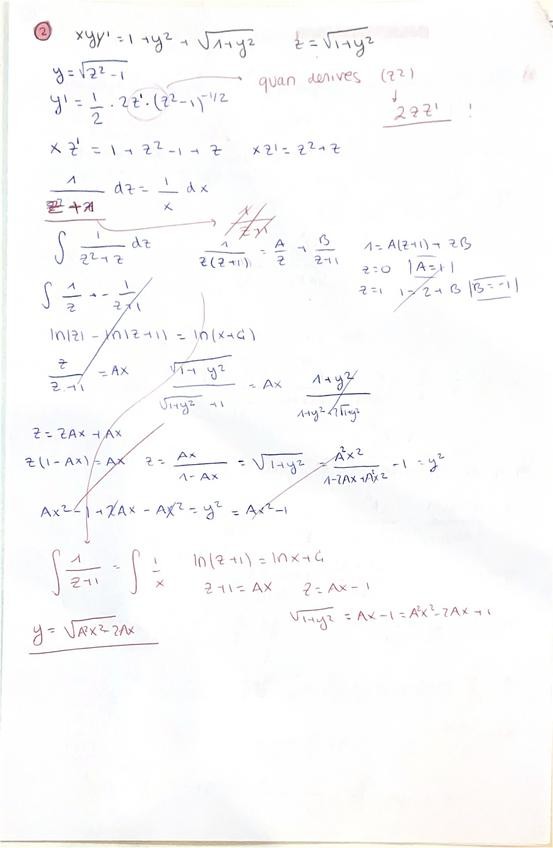 2 xyy' = 1 + y² + √1+y² z = √1+y²
y = √z²-1 quan derives (z²)
y' = 1/2 · 2z' · (z²-1)^-1/2 2zz' !
x z' = 1 + z² - 1 + z xz' = z² + z
1/z²+z dz = 1/x dx
∫ 1/z²+z dz 1/z(z+1) = A/z + B/z+1 1 = A(z+1) + zB
z=0 |A=1|
∫ 1/z + - 1/z+1 z=1 1 = 2 + B |B=-1|
ln|z| - ln|z+1| = ln(x+C)
z/z+1 = Ax √1+y²/√1+y² +1 = Ax 1+y²/1+y²+2√1+y²
z = zAx + Ax
z(1-Ax) = Ax z = Ax/1-Ax = √1+y² = A²x²/1-2Ax+A²x² - 1 = y²
Ax² - 1 + 2Ax - Ax² = y² = Ax² - 1
∫ 1/z+1 = ∫ 1/x ln(z+1) = lnx + C
z+1 = Ax z = Ax - 1
√1+y² = Ax - 1 = A²x² - 2Ax + 1
y = √A²x²-2Ax